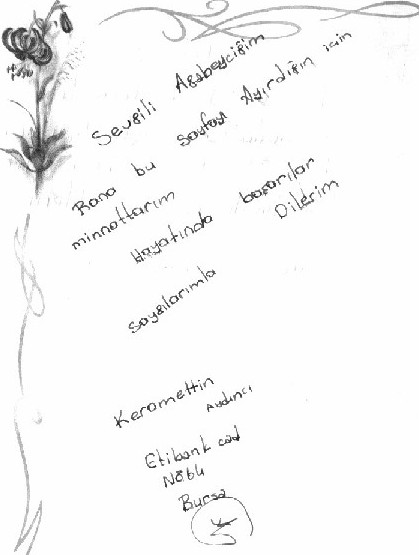 Sevgili Ağabeyciğim
Bana bu sayfayı Ayırdığın için
minnettarım
Hayatında başarılar
Dilerim
Saygılarımla
Keramettin
Aydıncı
Etibank cad
No:64
Bursa